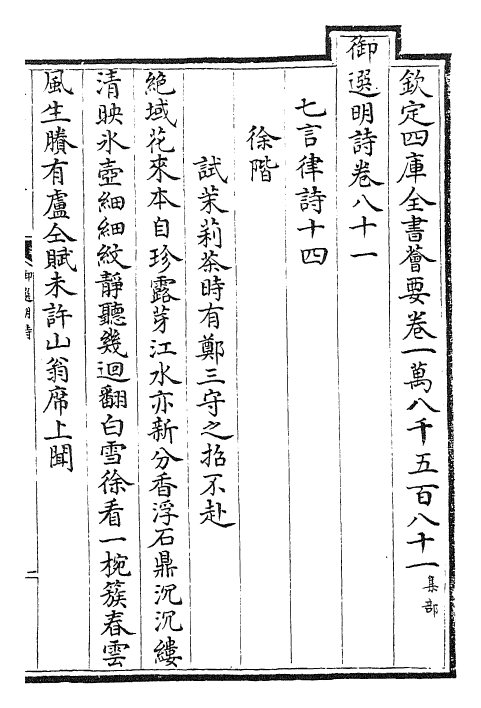 欽定四庫全書薈要卷一萬八千五百八十一集部
御選明詩卷八十一
七言律詩十四
徐階
試茉莉茶時有鄭三守之招不赴
絶域花來本自珍露芽江水亦新分香浮石鼎沉沉縷
清映氷壺細細紋靜聽幾迴翻白雪徐看一椀簇春雲
風生賸有盧仝賦未許山翁席上聞
御選明詩